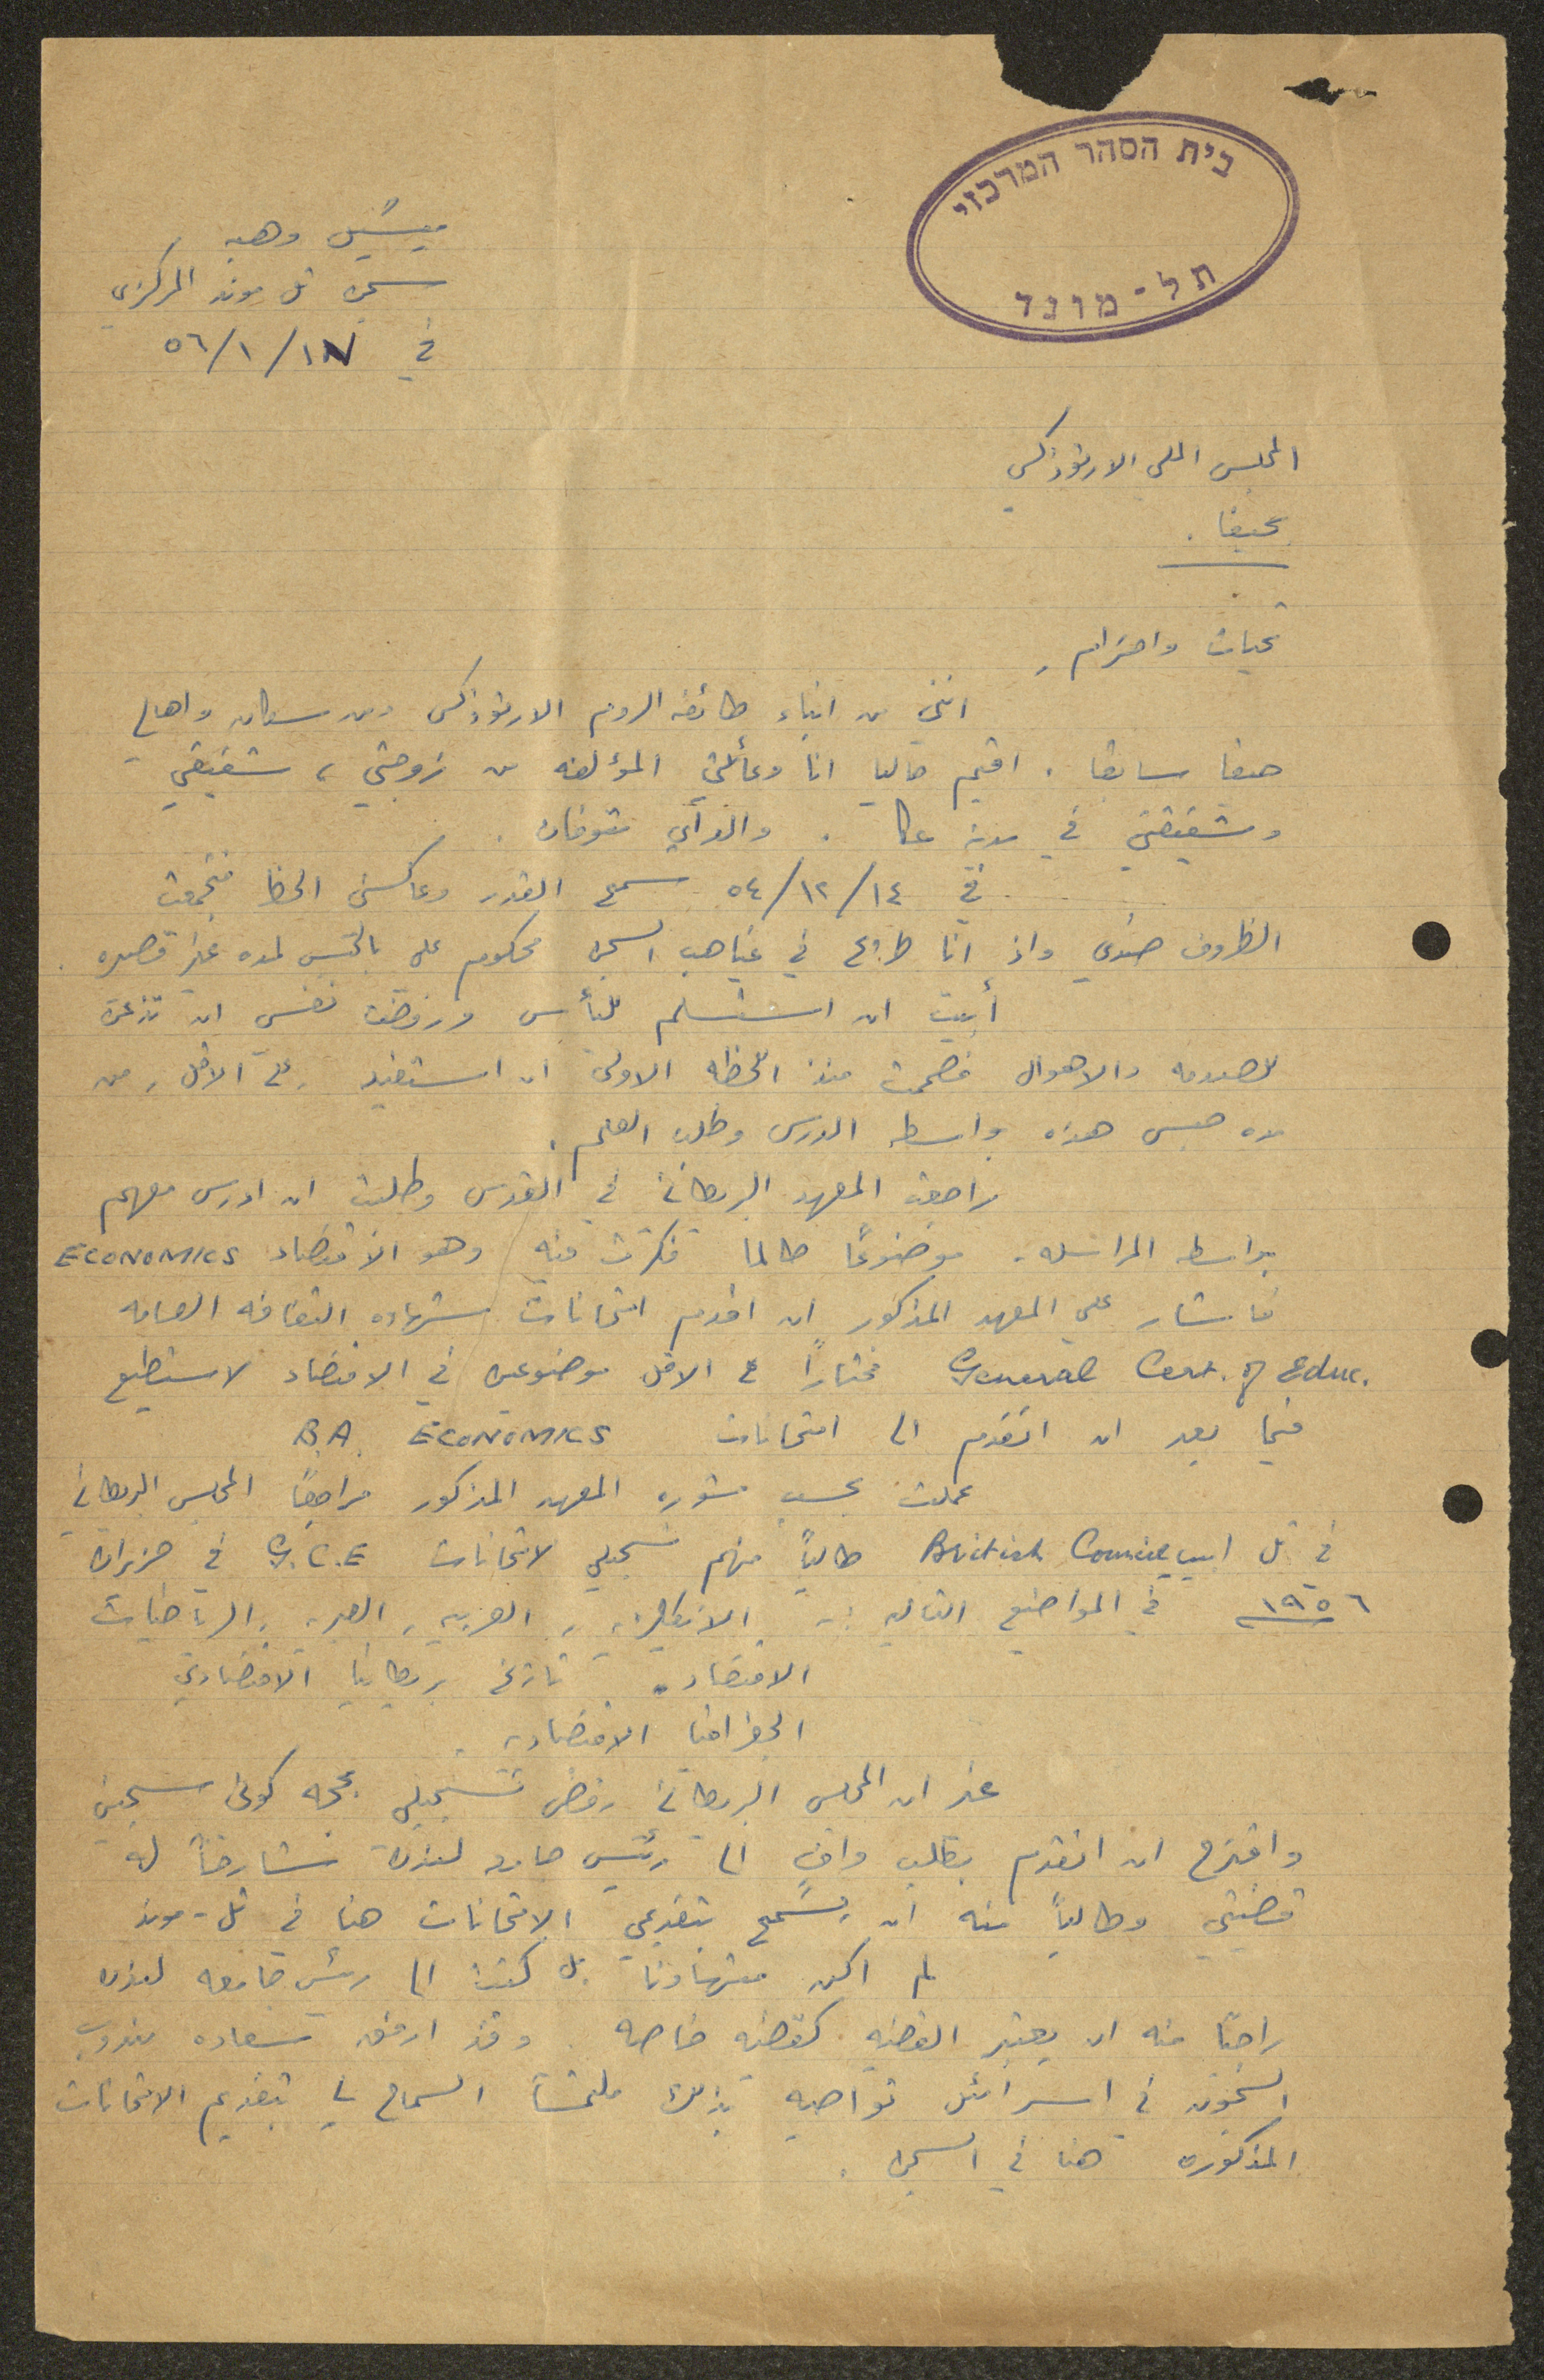 בית הסהר המרכזי
תל-מונד
ميشيل وهبه
سجن تل موند المركزي
في ١٧/١/٥٦
المجلس الملي الارثوذكسي
بحيفا.
تحيات واحترام,
انني من ابناء طائفه الروم الارثوذكس ومن سكان واهالي
حيفا سابقا. اقيم حاليا انا وعائلتي المؤلفه من زوجتي، شقيقي
وشقيقتي في مدينة عكا. والدآي متوفان.
في ١٤/١٢/٥٤ سمح القدر وعاكسني الحظ فتجمعت
الظروف ضدي واذ انا طريح في غياهب السجن محكوم علي بالحبس لمده غير قصيره.
أبيت ان استسلم لليأس ورفضت نفسي ان تذعن
للصدمه والاهوال فصممت منذ اللحظه الاولى ان استفيد, على الاقل, من
مدة حبسي هذه بواسطه الدرس وطلب العلم.
راجعت المعهد البريطاني في القدس وطلبت ان ادرس معهم
بواسطه المراسله. موضوعًا طالما فكرت فيه وهو الاقتصاد ECONOMICS
فاشار علي المعهد المذكور ان اقدم امتحانات شهاده الثقافه العامه
General Cert. of Educ. مختارًا على الاقل موضوعين في الاقتصاد لاستطيع
فيما بعد ان اتقدم الى امتحانات B.A. ECONOMICS
عملت بحسب مشوره المعهد المذكور مراجعًا المجلس البريطاني
في تل ابيب British Council طالبًا منهم تسجيلي لامتحانات G.C.E في حزيران
١٩٥٦ في المواضيع التاليه :- الانكليزيه, العربيه, العبريه, الرياضيات
الاقتصاد. تاريخ بريطانيا الاقتصادي
الجغرافيا الاقتصاديه.
غير ان المجلس البريطاني رفض تسجيلي بحجه كوني سجين
واقترح ان اتقدم بطلب وافٍ الى رئيس جامعه لندن شارحًا له
قضيتي وطالبًا منه ان يسمح بتقديمي الامتحانات هنا في تل-موند
لم اكن متهاونًا بل كتبت الى رئيس جامعه لندن
راجيًا منه ان يعتبر القضيه كقضيه خاصه. وقد ارفق سعاده مندوب
السجون في اسرائيل تواصيه بذلك ملتمسًا السماح لي بتقديم الامتحانات
المذكوره هنا في السجن.